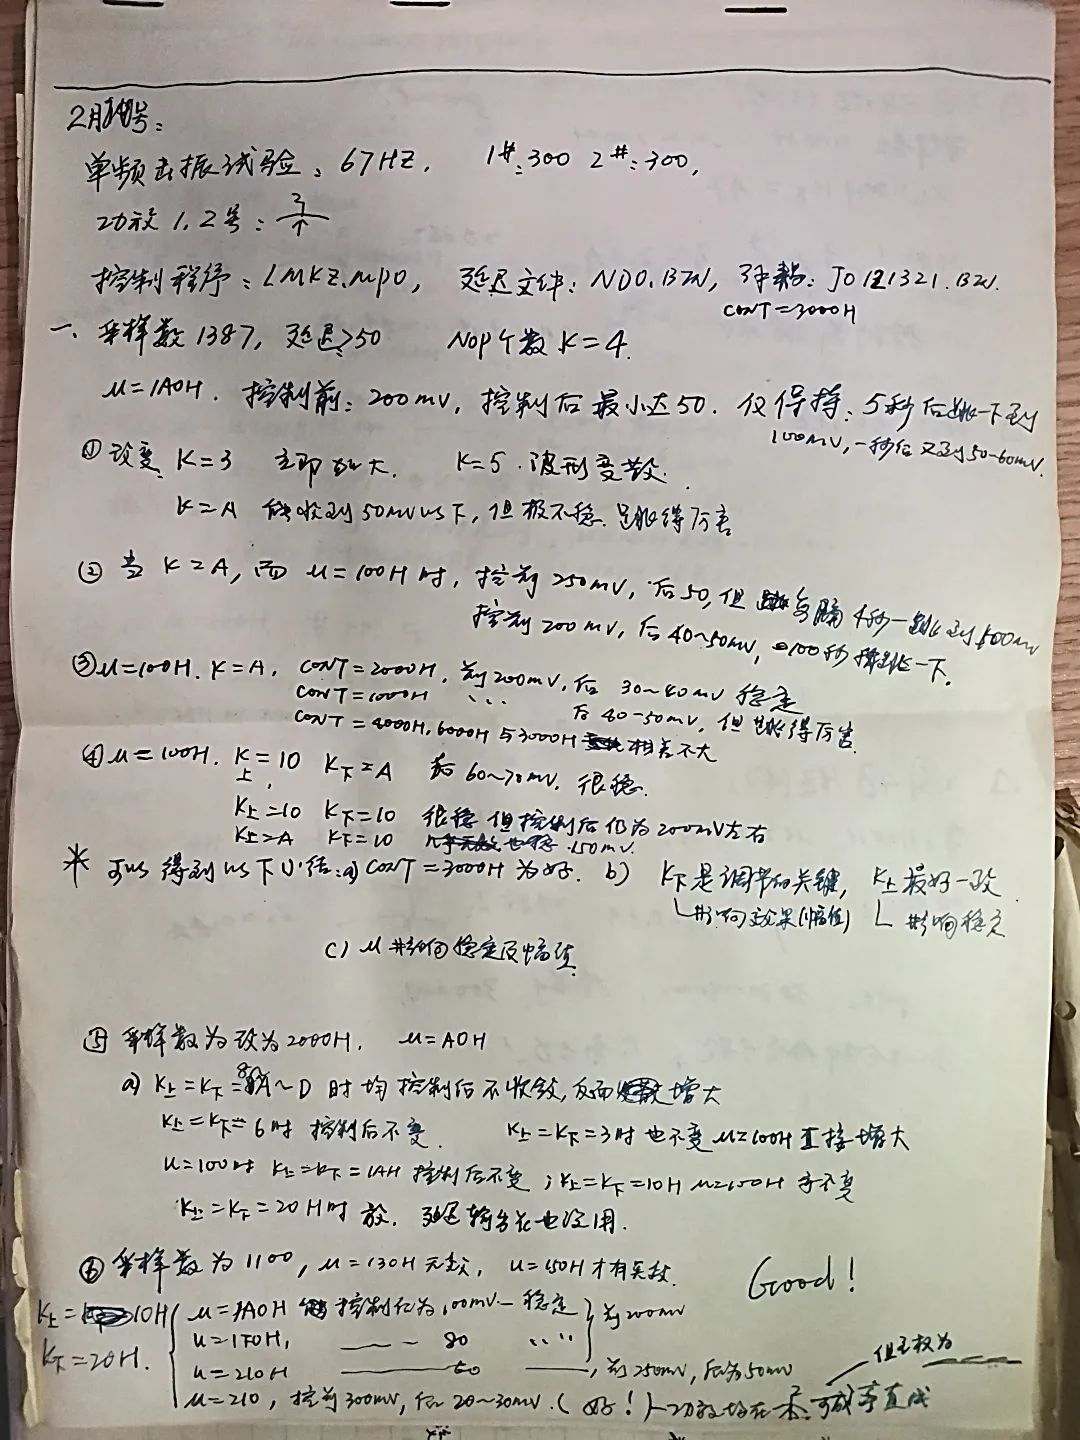 2月 号:
单频击振试验: 67HZ, 1#:300 2#:300,
功放1.2号:
控制程序: LMKZ.MPO, 延迟文件: NDO.BZN, : JO 1321.BZN.
CONT=3000H
一、采样数1387, 延迟>50 NOP个数K=4.
μ=1A0H. 控制前: 200mV, 控制后最小达50. 仅保持: 5秒后跳一下到
100mV, 一秒后又到50-60mV.
① 改变 K=3 立即 大. K=5. 波形变散.
K=A 能收到50mV以下, 但极不稳. 跳得厉害
② 当K=A, 而μ=100H时, 控前250mV, 后50, 但每隔4秒一跳到100mV
控前200mV, 后40~50mV, 100秒 跳一下.
③ μ=100H. K=A, CONT=2000H, 前200mV, 后30~40mV 稳定
CONT=1000H 〃 后40-50mV, 但跳得厉害.
CONT=4000H, 6000H与3000H 相差不大
④ μ=100H. K上=10 K下=A 后60~70mV. 很稳.
K上=10 K下=10 很稳 但控制后仍为200mV左右
K上=A K下=10 也稳.150mV.
* 可以得到以下小结: a) CONT=3000H为好. b) K下是调节的关键, K上最好一致
影响效果(幅值) 影响稳定
c) μ影响稳定及幅值.
⑤ 采样数为改为2000H. μ=A0H
a) K上=K下=8 ~D 时均控制后不收敛, 反而增大
K上=K下=6时 控制后不变. K上=K下=3时也不变 μ=100H直接增大
μ=100时 K上=K下=1AH 控制后不变; K上=K下=10H μ=100H 亦不变
K上=K下=20H时 放. 延迟输出 也没用.
⑥ 采样数为1100, μ=130H无效, μ=150H才有实效. Good!
K上=10H μ=1A0H 控制后为100mV — 稳定 前200mV
K下=20H. μ=170H, —— 80 〃
μ=210H —— 60 ——, 前250mV, 后为50mV 但主校为
μ=210, 控前300mV, 后20~30mV. (好!) 功放均在 . 可减率直成